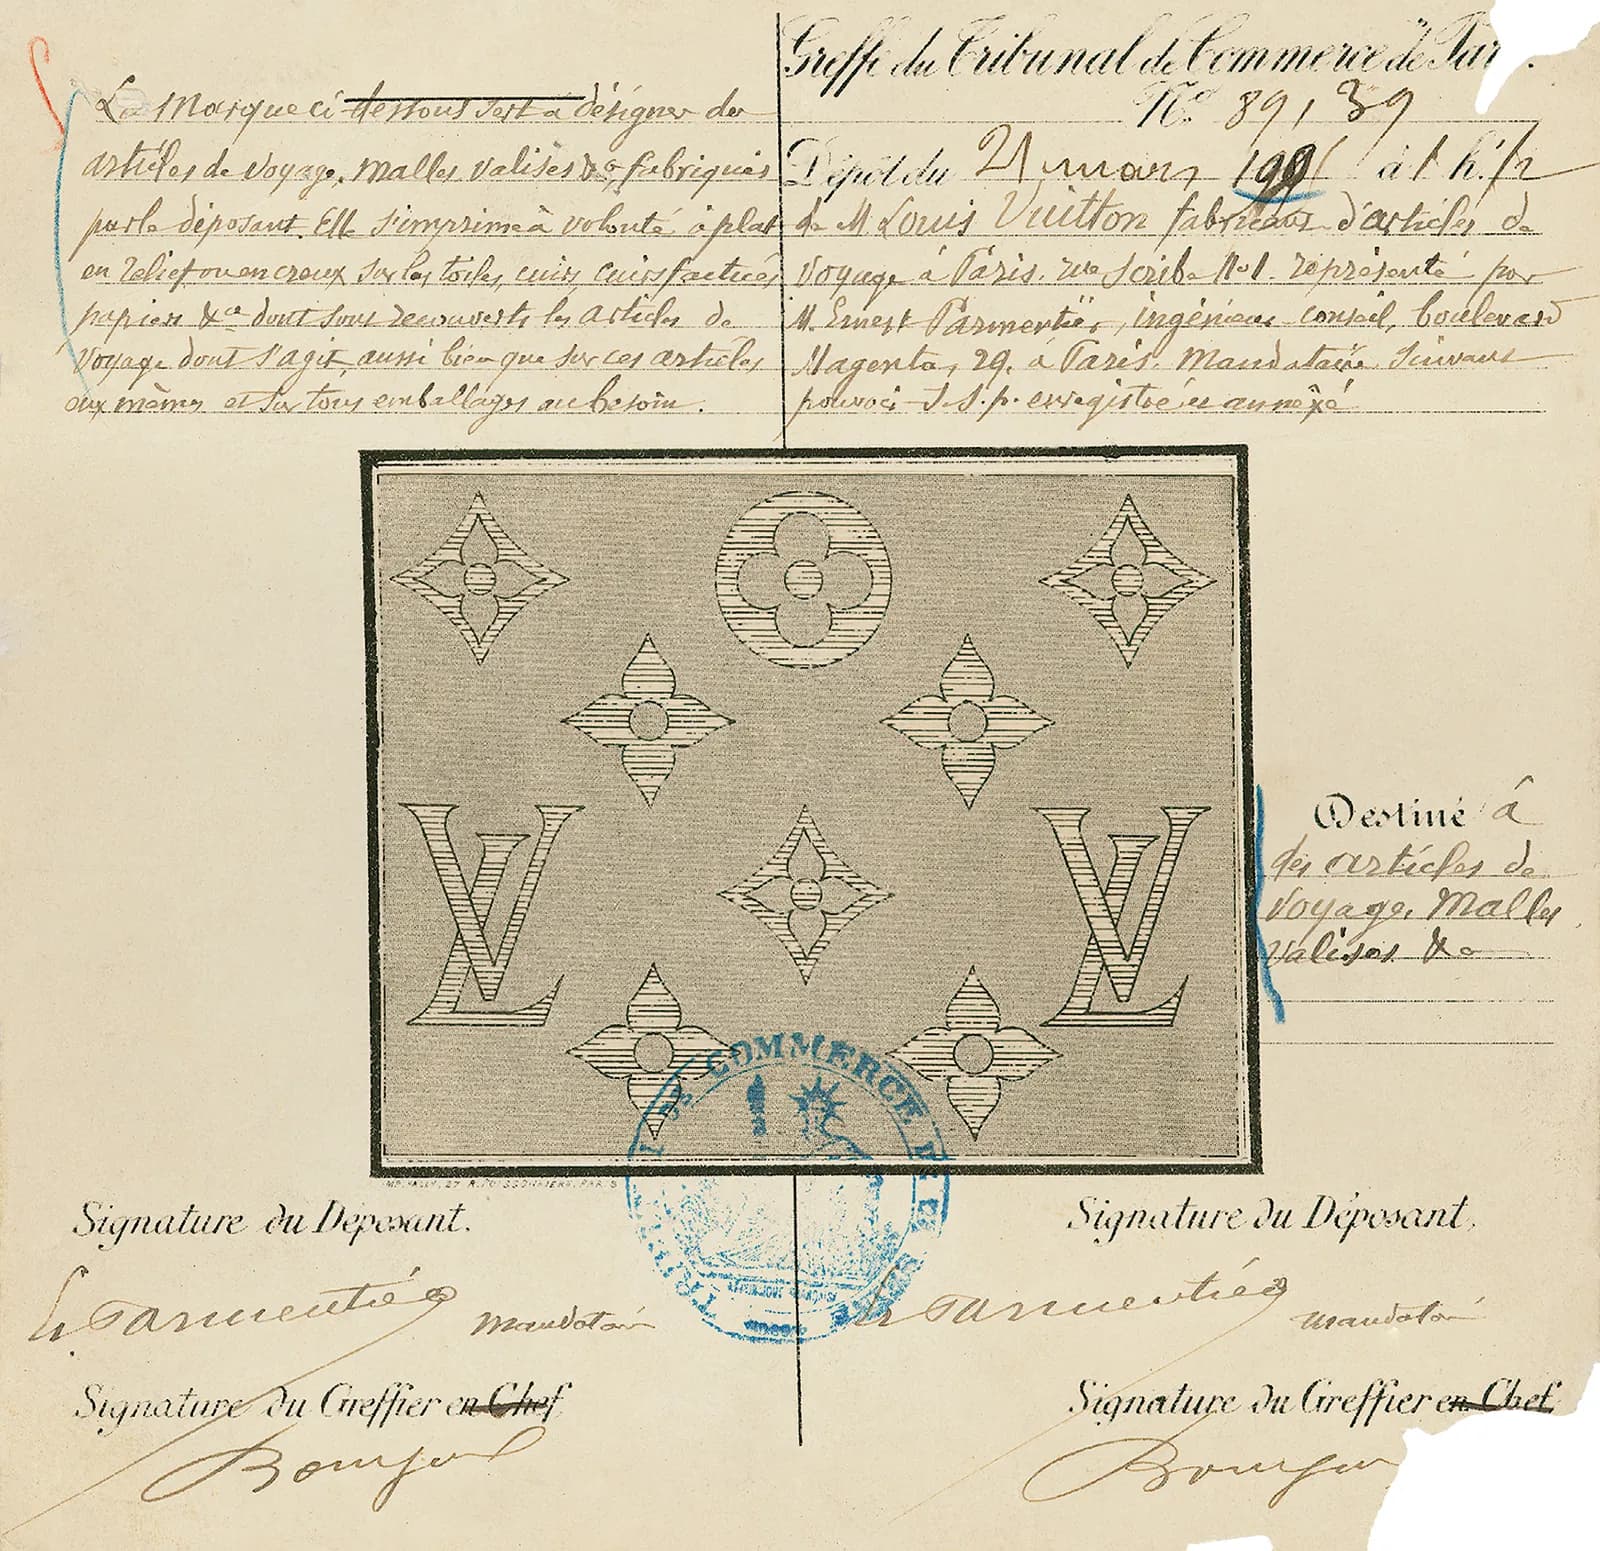 Greffe du Tribunal de Commerce de Par
No. 89,39
La Marque ci dessous sert à désigner des
articles de voyage, malles, valises &a, fabriqués
par le déposant. Elle s'imprime à volonté à plat
en relief ou en creux sur les toiles, cuirs, cuirs factices,
papiers &a dont sont recouverts les articles de
voyage dont s'agit, aussi bien que sur ces articles
eux mêmes et sur tous emballages au besoin.
Dépôt du 21 mars à 1 h. 1/2
de M Louis Vuitton fabricant d'articles de
voyage à Paris. rue Scribe No 1. représenté par
M. Ernest Parmentier, ingénieur conseil, boulevard
Magenta, 29. à Paris. Mandataire suivant
pouvoir S.S.p. enregistré et annexé
LV
LV
Destiné à
des articles de
voyage, Malles
valises &a
TRIBUNAL DE COMMERCE DE LA SEINE
RÉPUBLIQUE FRANÇAISE
Signature du Déposant.
Signature du Déposant,
E. Parmentier mandataire
E. Parmentier mandataire
Signature du Greffier en Chef
Signature du Greffier en Chef